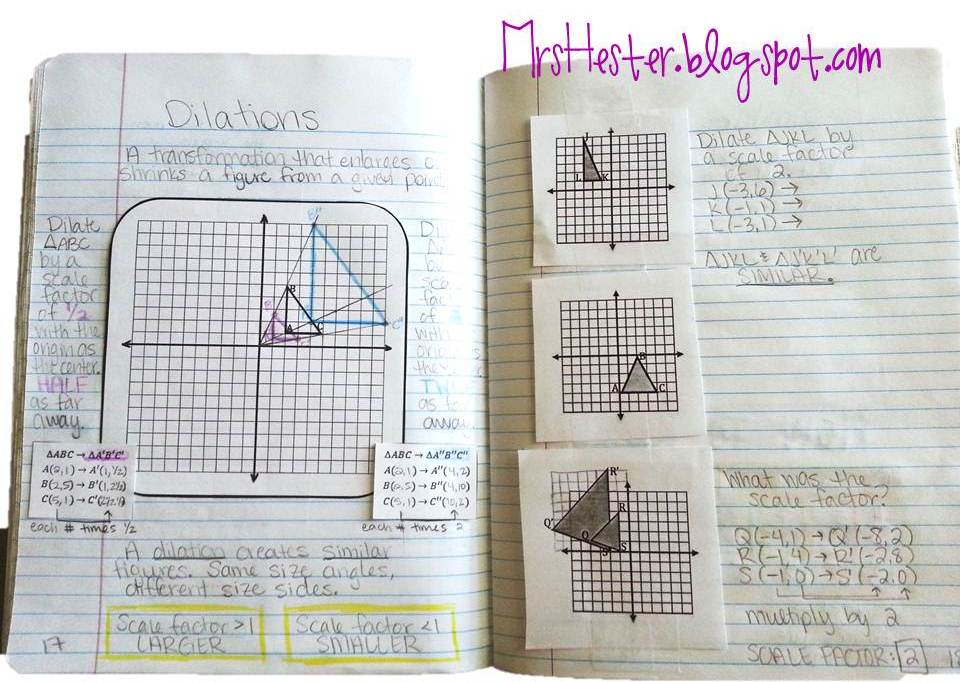 MrsHester.blogspot.com
Dilations
A transformation that enlarges o
shrinks a figure from a given point
Dilate
△ABC
by a
scale
factor
of 1/2
with the
origin as
the center.
HALF
as far
away.
B''
B
A
C
C''
△ABC → △A'B'C'
A(2,1) → A'(1,1/2)
B(2,5) → B'(1,2½)
C(5,1) → C'(2½,½)
each # times 1/2
△ABC → △A''B''C''
A(2,1) → A''(4,2)
B(2,5) → B''(4,10)
C(5,1) → C''(10,2)
each # times 2
A dilation creates similar
figures. Same size angles,
different size sides.
Scale factor >1
LARGER
Scale factor <1
SMALLER
17
J
L
K
Dilate △JKL by
a scale factor
of 2.
J(-3,6) →
K(-1,1) →
L(-3,1) →
△JKL & △J'K'L' are
SIMILAR.
B
A
C
R'
R
Q'
Q
S
What was the
scale factor?
Q(-4,1) → Q'(-8,2)
R(-1,4) → R'(-2,8)
S(-1,0) → S'(-2,0)
multiply by 2
SCALE FACTOR: 2
18